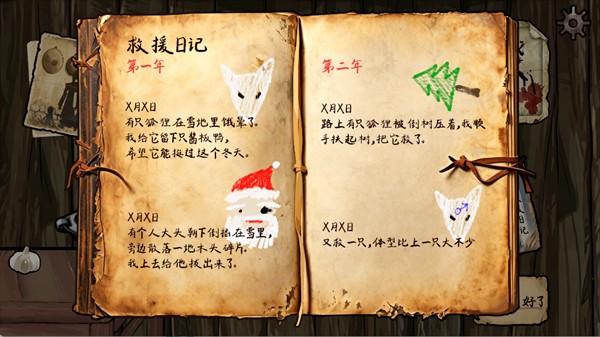 救援日记
第一年
X月X日
有只狐狸在雪地里饿晕了。
我给它留下只酱板鸭，
希望它能挺过这个冬天。
X月X日
有个人大头朝下倒插在雪里，
旁边散落一地木头碎片。
我上去给他拔出来了。
第二年
X月X日
路上有只狐狸被倒树压着，我顺
手扶起树，把它救了。
X月X日
又救一只，体型比上一只大不少
日记
好了